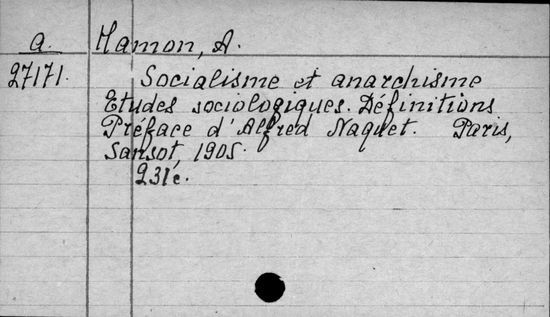 a. Hamon, A.
27171. Socialisme et anarchisme
Etudes sociologiques. Définitions
Préface d'Alfred Naquet. Paris,
Sansot, 1905.
231c.